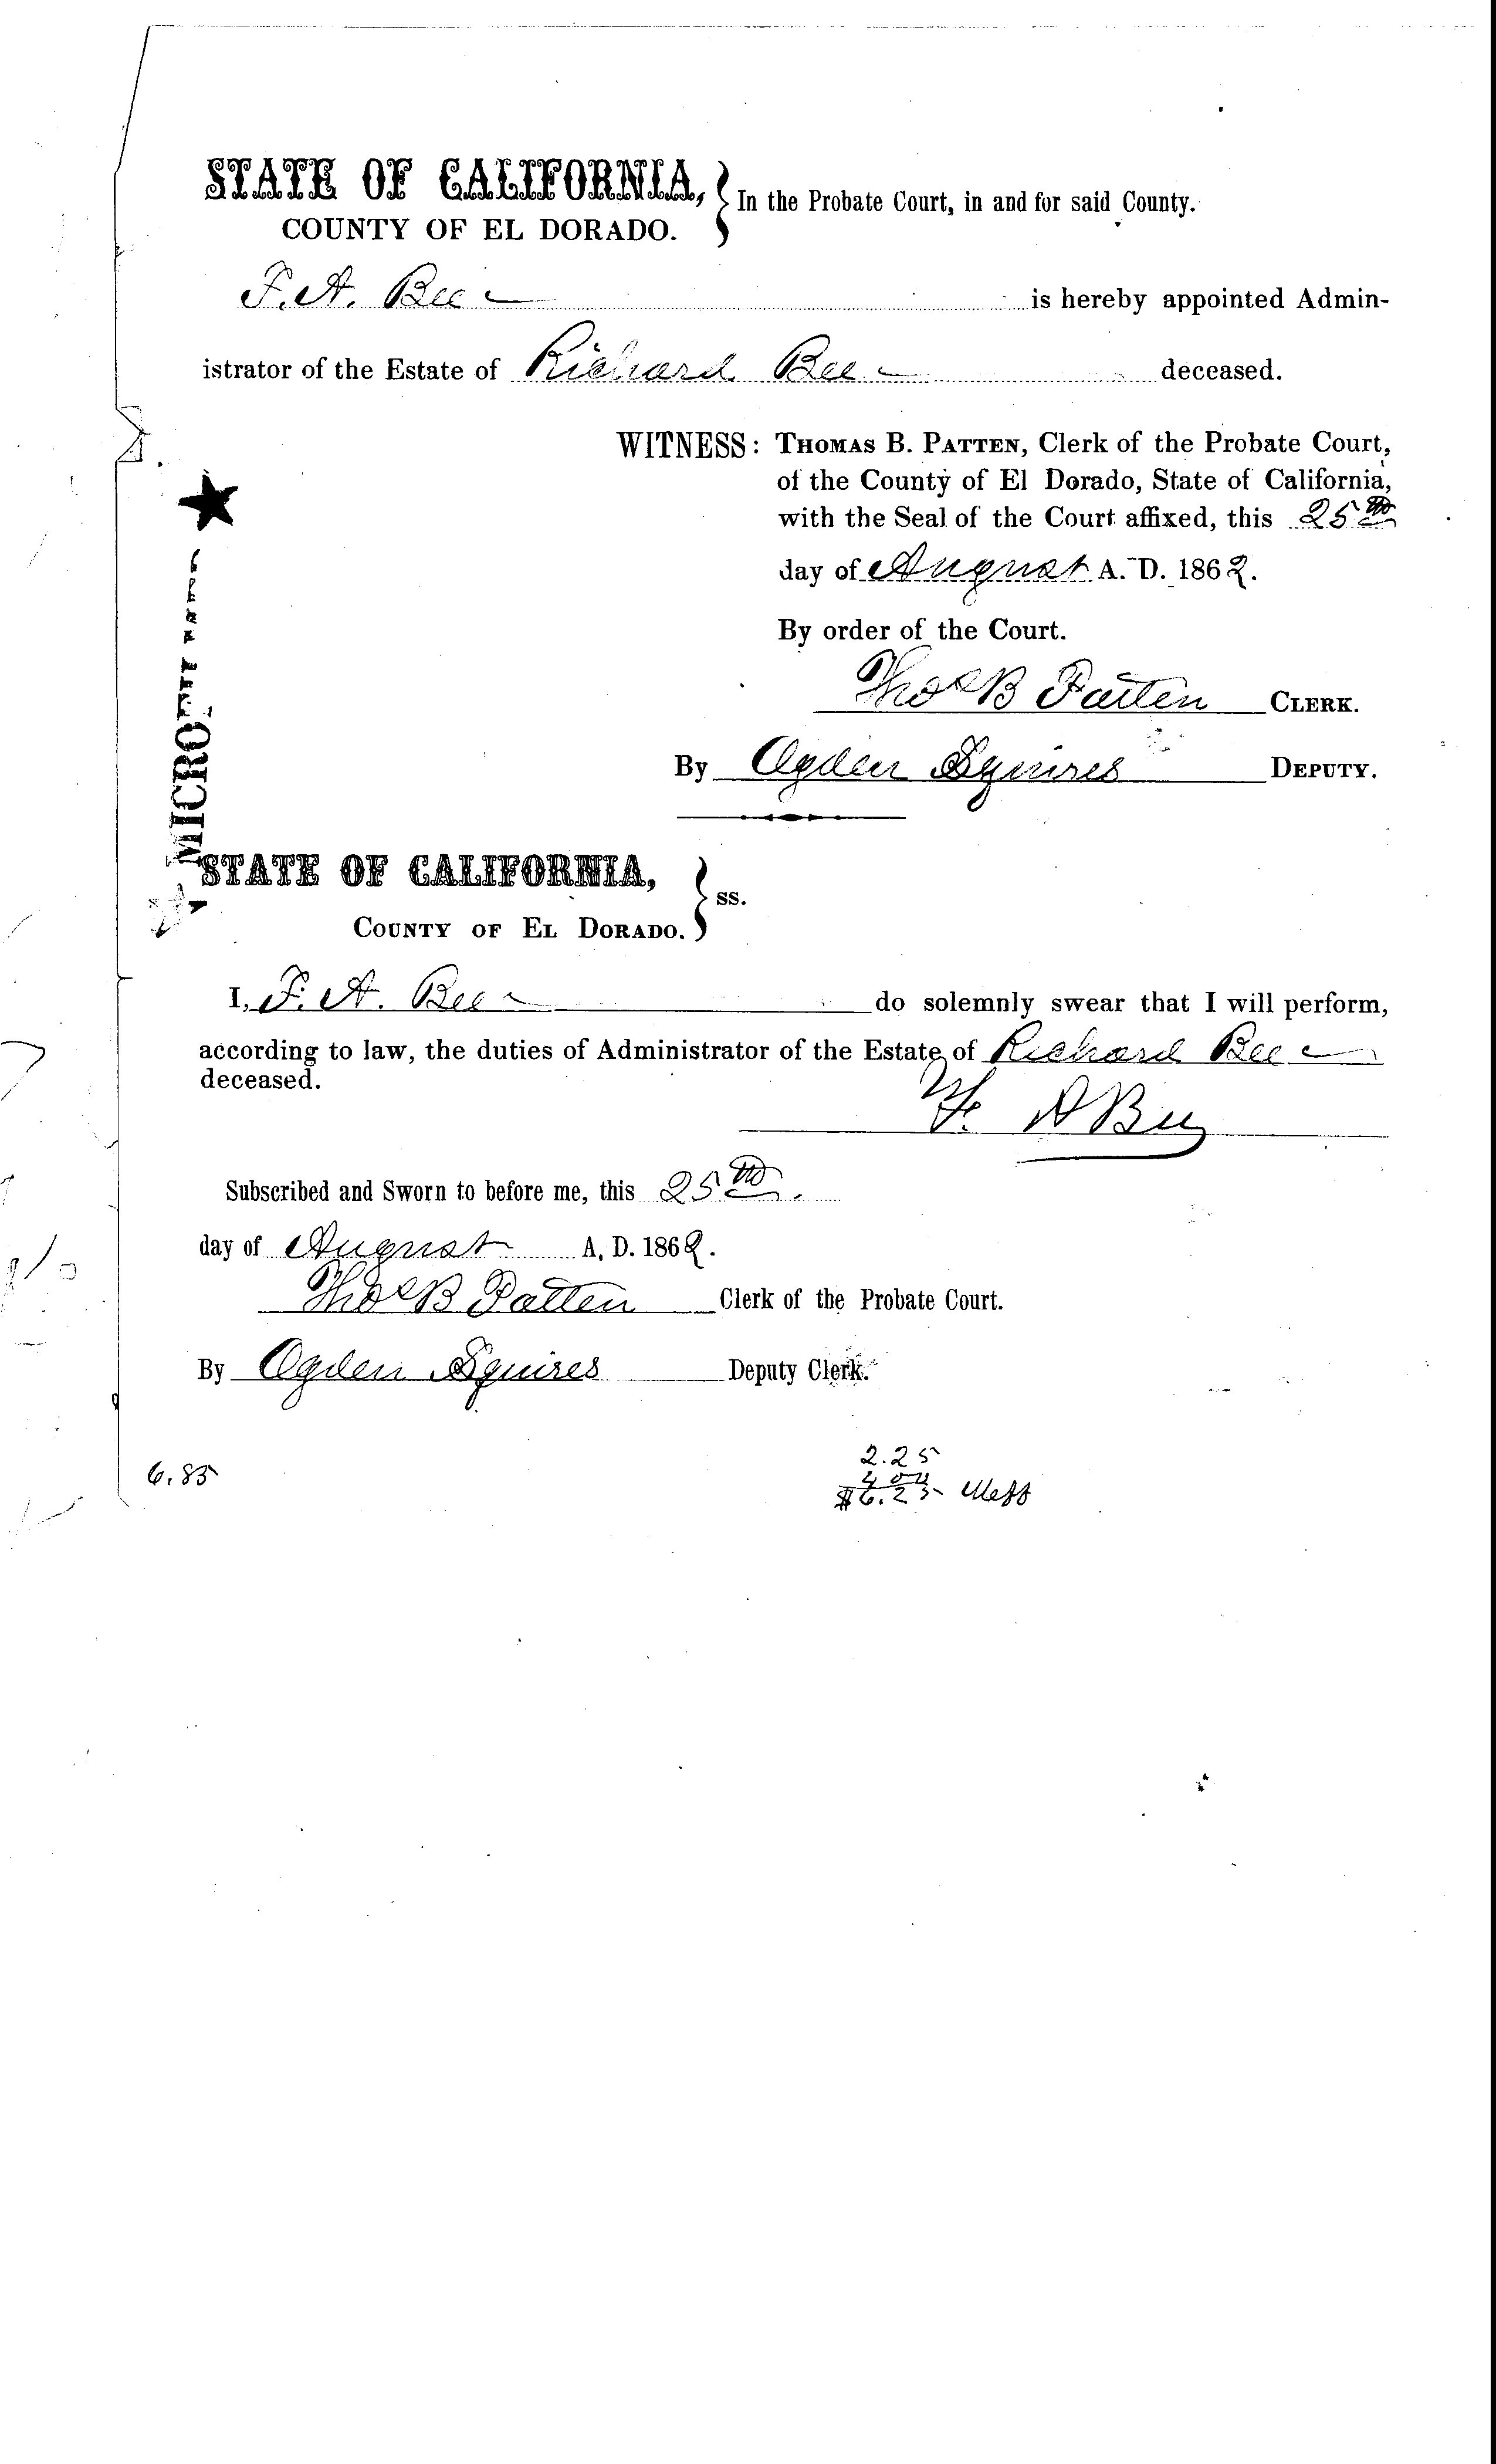 STATE OF CALIFORNIA,
COUNTY OF EL DORADO.
In the Probate Court, in and for said County.
F. A. Bee is hereby appointed Admin-
istrator of the Estate of Richard Bee deceased.
WITNESS: THOMAS B. PATTEN, Clerk of the Probate Court,
of the County of El Dorado, State of California,
with the Seal of the Court affixed, this 25th
day of August A. D. 1862.
By order of the Court.
Thos B Patten CLERK.
By Ogden Squires DEPUTY.
STATE OF CALIFORNIA,
COUNTY OF EL DORADO. ss.
I, F. A. Bee do solemnly swear that I will perform,
according to law, the duties of Administrator of the Estate of Richard Bee
deceased.
F. A Bee
Subscribed and Sworn to before me, this 25th.
day of August A. D. 1862.
Thos B Patten Clerk of the Probate Court.
By Ogden Squires Deputy Clerk.
6.85
2.25
4 00
$6.25